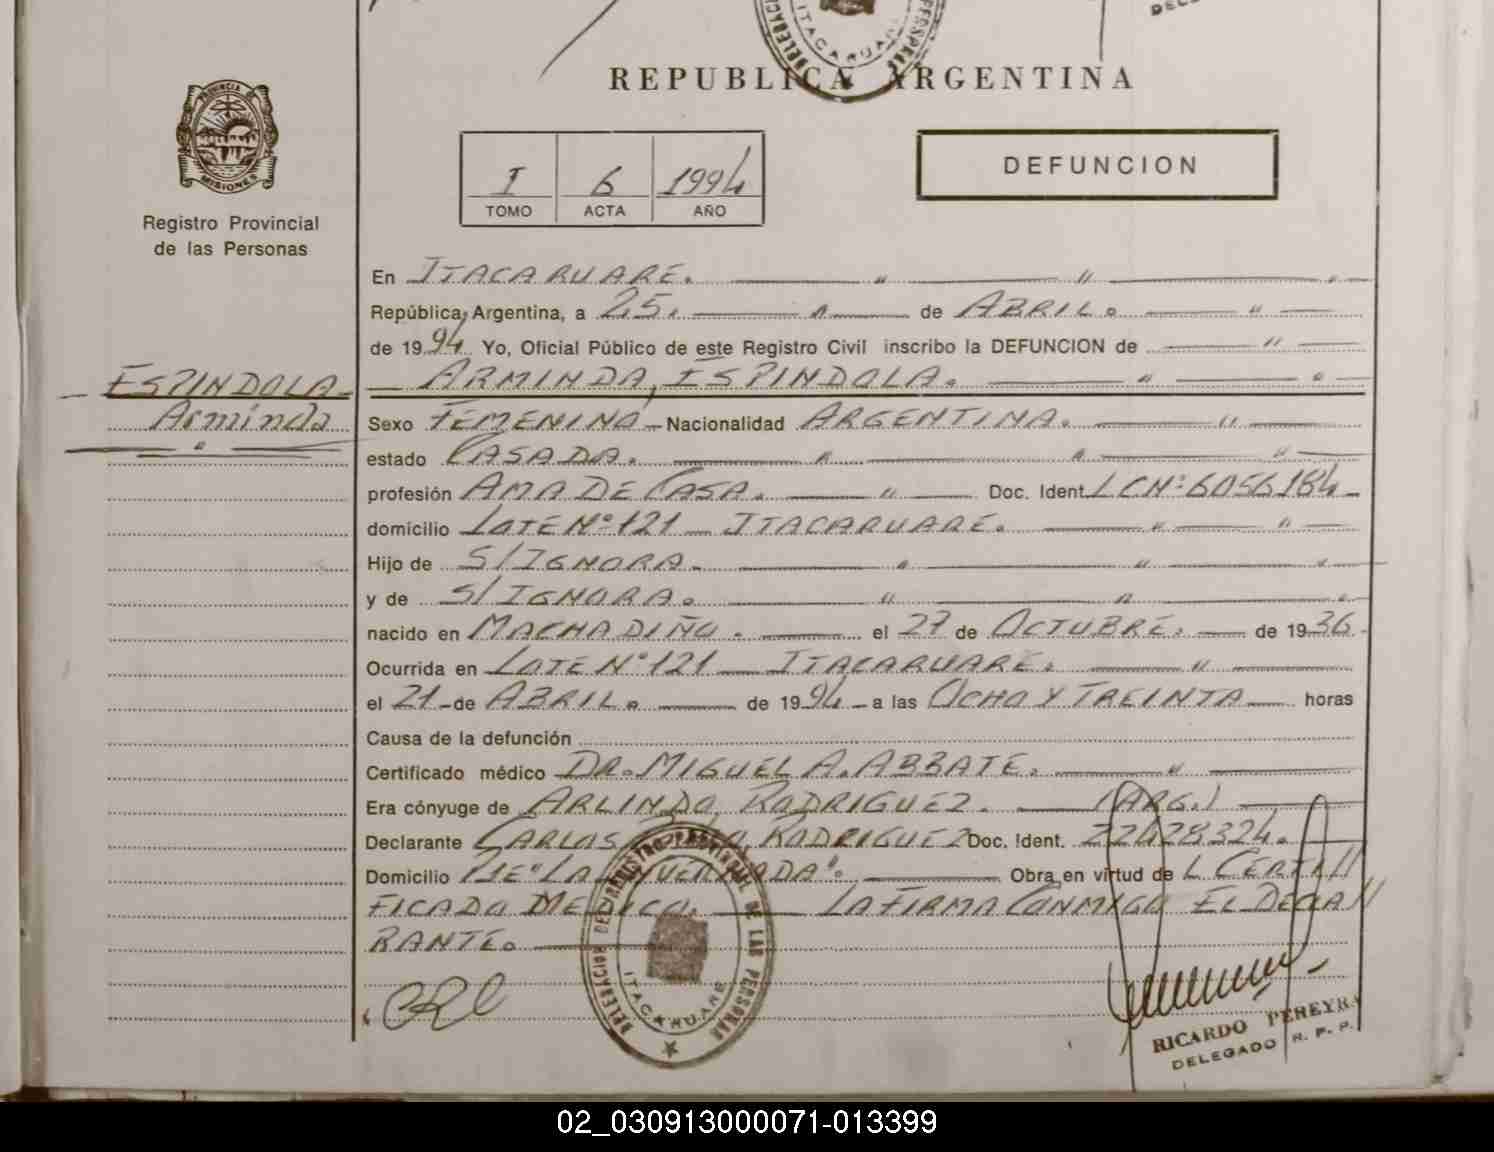 ITACARUARE
REPUBLICA ARGENTINA
PROVINCIA DE
MISIONES
Registro Provincial
de las Personas
I 6 1994
TOMO ACTA AÑO
DEFUNCION
En ITACARUARE. — " — " — "
República Argentina, a 25. — " — de ABRIL. — " —
de 1994 Yo, Oficial Público de este Registro Civil inscribo la DEFUNCION de — " —
ESPINDOLA — ARMINDA, ESPINDOLA. — " — " —
Arminda
Sexo FEMENINO — Nacionalidad ARGENTINA. — " —
estado CASADA. — " — " — " —
profesión AMA DE CASA. — " — Doc. Ident. LCNº 6056184 —
domicilio LOTE Nº 121 — ITACARUARE. — " — " —
Hijo de S/IGNORA. — " — " — "
y de S/IGNORA. — " — " — "
nacido en MACHADIÑO. — el 27 de OCTUBRE. — de 1936.
Ocurrida en LOTE Nº 121 — ITACARUARE. — " —
el 21 — de ABRIL. — de 1994 — a las OCHO Y TREINTA — horas
Causa de la defunción
Certificado médico DR. MIGUEL A. ABBATE. — " —
Era cónyuge de ARLINDO, RODRIGUEZ. — (ARG.) —
Declarante CARLOS RODRIGUEZ Doc. Ident. 22428324.
Domicilio — Obra en virtud de L CERTI//
FICADO MEDICO. — LA FIRMA CONMIGO EL DECLA//
RANTE. —
REGISTRO PROVINCIAL DE LAS PERSONAS
ITACARUARE
RICARDO PEREYRA
DELEGADO R. P. P.
02_030913000071-013399